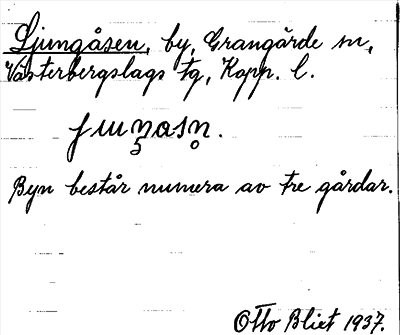 Ljungåsen, by, Grangärde sn,
Västerbergslags tg, Kopp. l.
Byn består numera av tre gårdar.
Otto Blixt 1937.